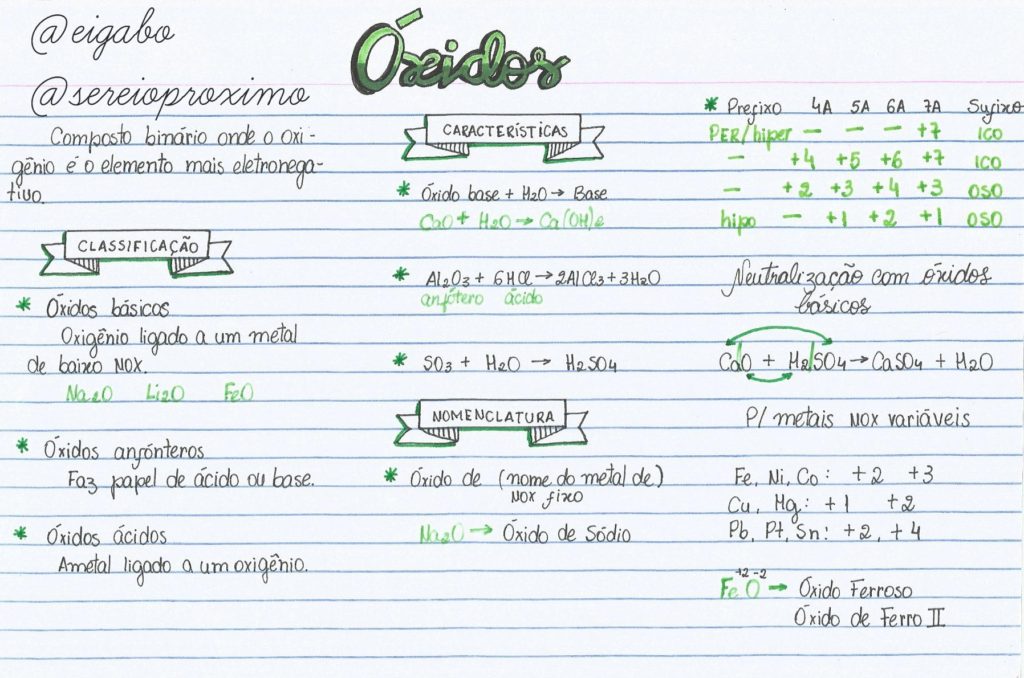 @eigabo
@sereioproximo
Óxidos
Composto binário onde o oxi-
gênio é o elemento mais eletronega-
tivo.
CLASSIFICAÇÃO
* Óxidos básicos
Oxigênio ligado a um metal
de baixo NOX.
Na2O Li2O FeO
* Óxidos anfónteros
Faz papel de ácido ou base.
* Óxidos ácidos
Ametal ligado a um oxigênio.
CARACTERÍSTICAS
* Óxido base + H2O → Base
CaO + H2O → Ca(OH)2
* Al2O3 + 6HCl → 2AlCl3 + 3H2O
anfótero ácido
* SO3 + H2O → H2SO4
NOMENCLATURA
* Óxido de (nome do metal de)
NOX fixo
Na2O → Óxido de Sódio
* Prefixo 4A 5A 6A 7A Sufixo
PER/hiper – – – +7 ICO
– +4 +5 +6 +7 ICO
– +2 +3 +4 +3 OSO
hipo – +1 +2 +1 OSO
Neutralização com óxidos
básicos
CaO + H2SO4 → CaSO4 + H2O
P/ metais NOX variáveis
Fe, Ni, Co: +2 +3
Cu, Hg: +1 +2
Pb, Pt, Sn: +2, +4
+2 -2
FeO → Óxido Ferroso
Óxido de Ferro II